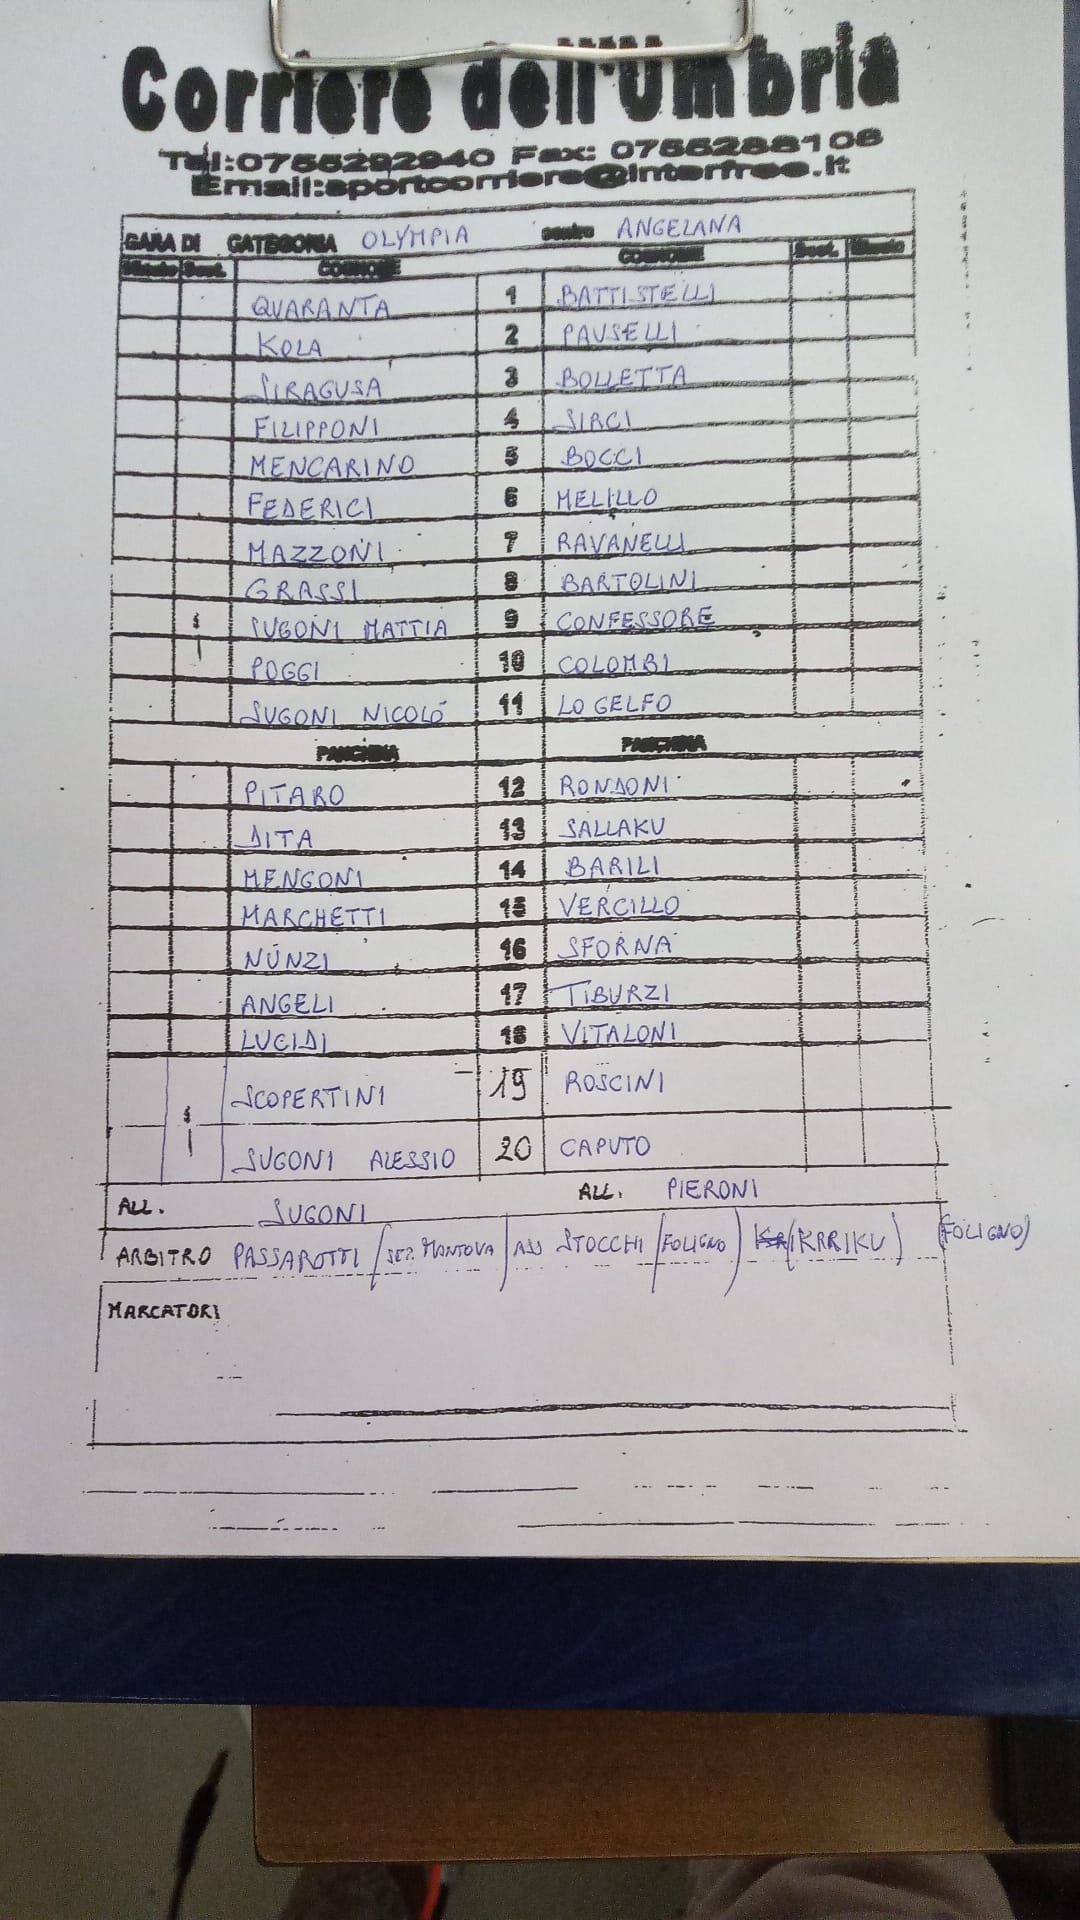 Corriere dell'Umbria
Tel:0755292940 Fax: 0755288108
Email:sportcorriere@interfree.it
GARA DI CATEGORIA OLYMPIA contro ANGELANA
Minuto Sost. COGNOME COGNOME Sost. Minuto
QUARANTA 1 BATTISTELLI
KOLA 2 PAUSELLI
SIRAGUSA 3 BOLLETTA
FILIPPONI 4 SIRCI
MENCARINO 5 BOCCI
FEDERICI 6 MELILLO
MAZZONI 7 RAVANELLI
GRASSI 8 BARTOLINI
SUGONI MATTIA 9 CONFESSORE
POGGI 10 COLOMBI
SUGONI NICOLÓ 11 LO GELFO
PANCHINA PANCHINA
PITARO 12 RONDONI
DITA 13 SALLAKU
MENGONI 14 BARILI
MARCHETTI 15 VERCILLO
NUNZI 16 SFORNA
ANGELI 17 TIBURZI
LUCIDI 18 VITALONI
SCOPERTINI 19 ROSCINI
SUGONI ALESSIO 20 CAPUTO
ALL. SUGONI ALL. PIERONI
ARBITRO PASSAROTTI (SEZ. MANTOVA) ASS STOCCHI (FOLIGNO) (KRRIKU) (FOLIGNO)
MARCATORI